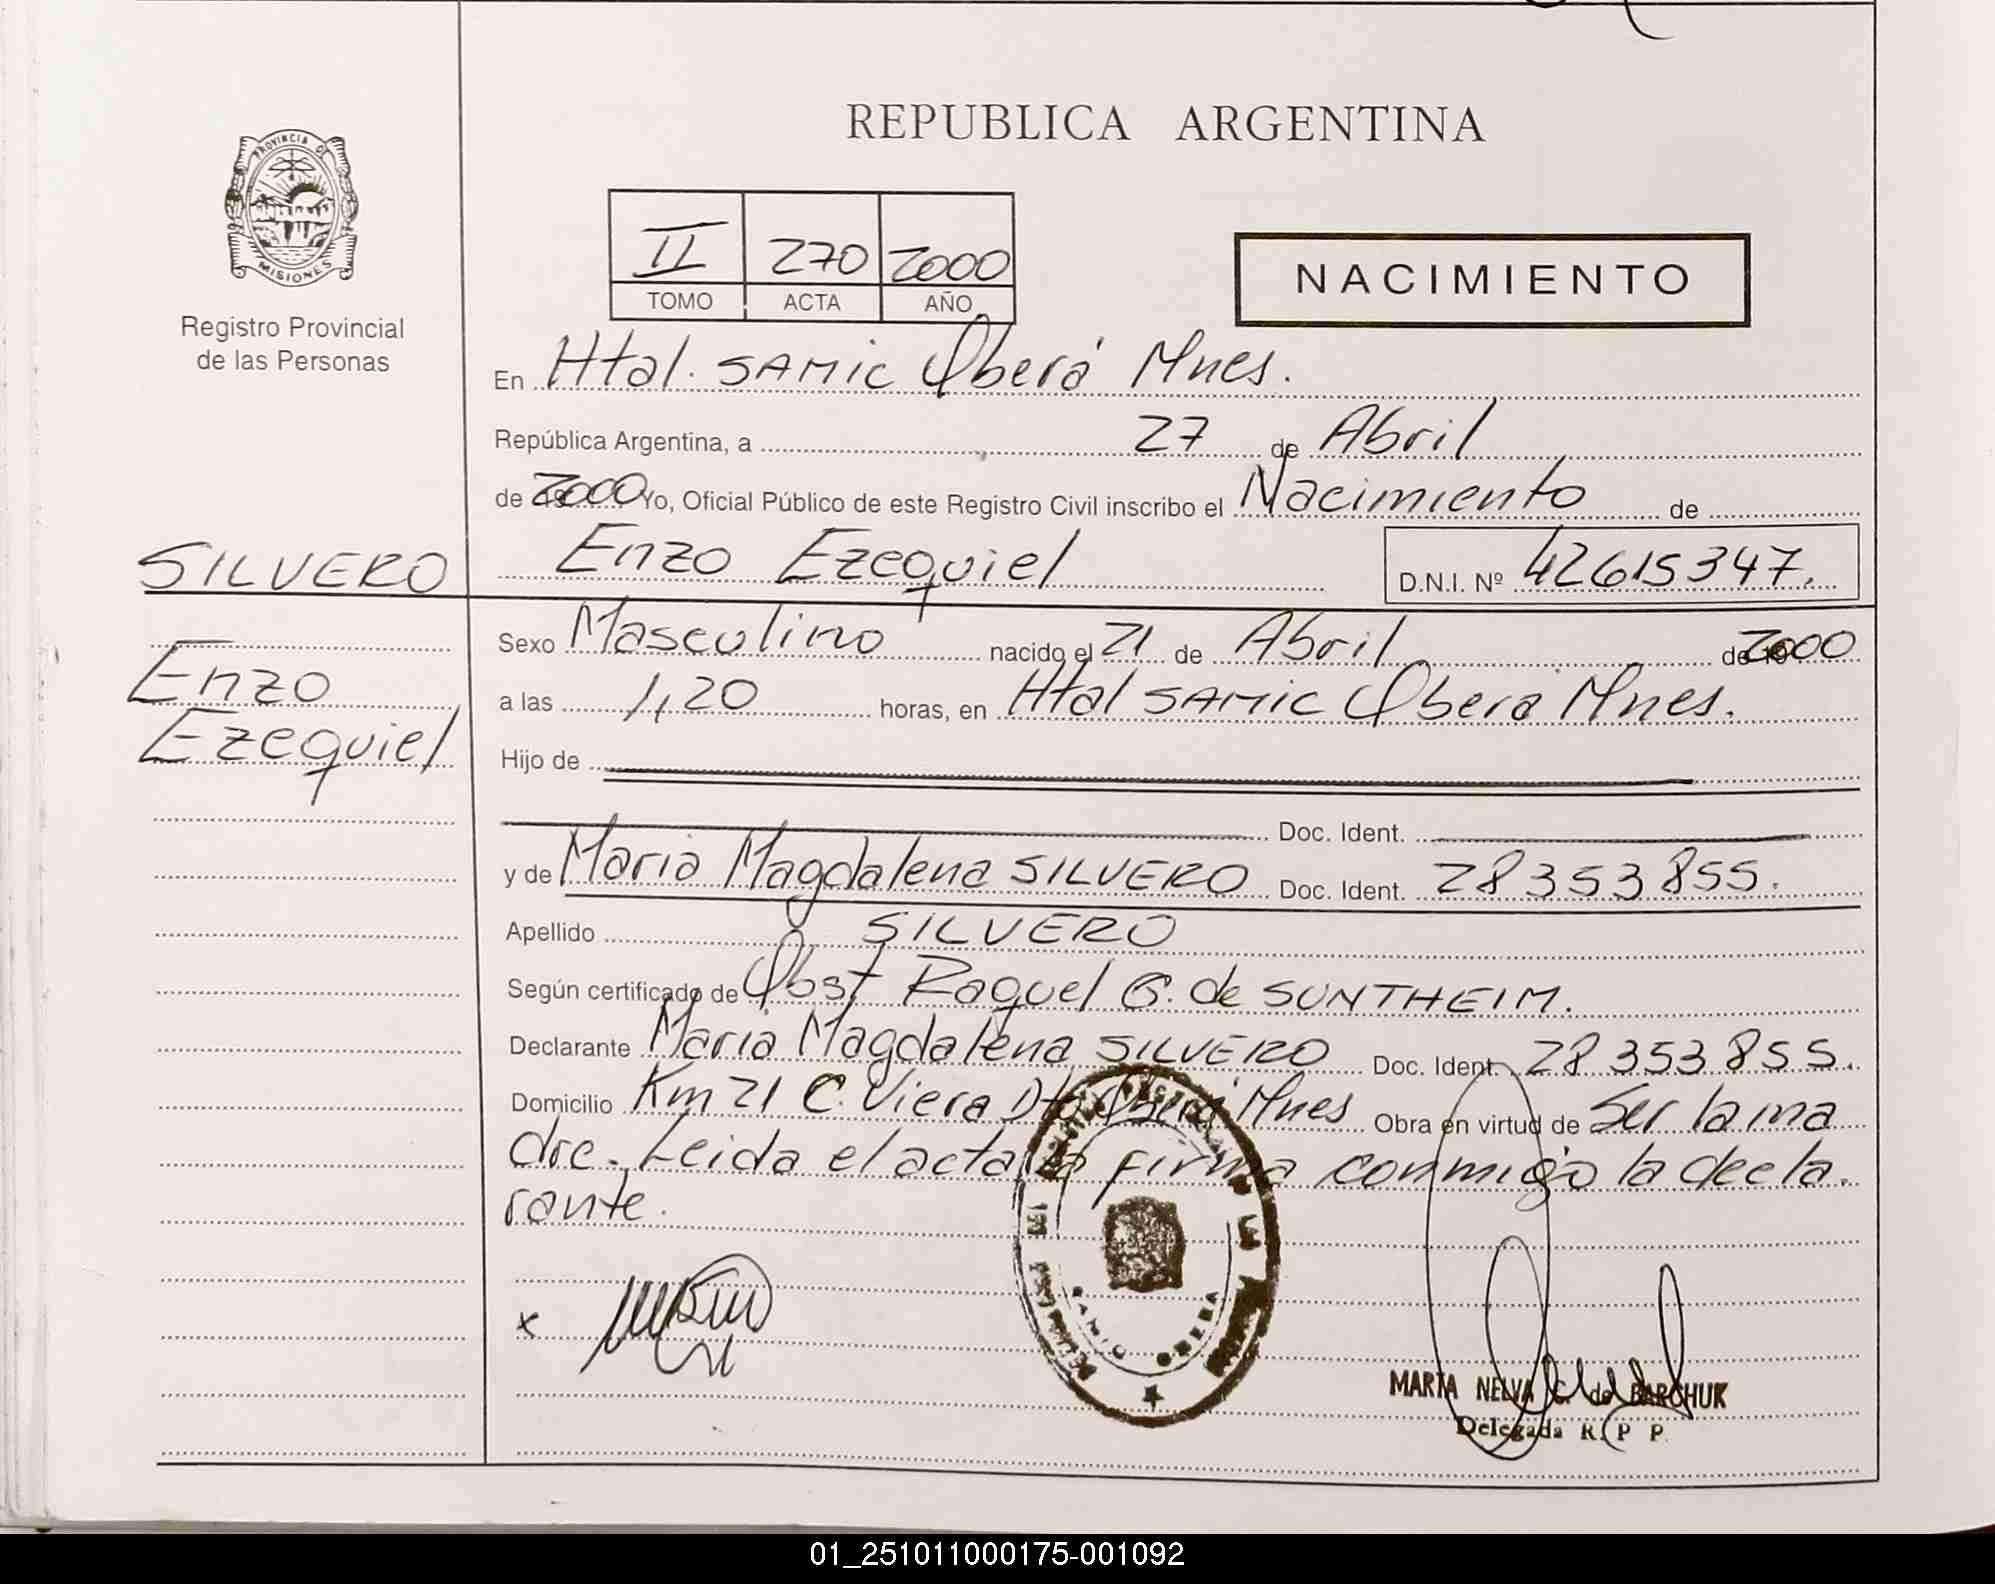 REPUBLICA ARGENTINA
PROVINCIA DE
MISIONES
Registro Provincial
de las Personas
II 270 2000
TOMO ACTA AÑO
NACIMIENTO
En Htal. SAMIC Oberá Mnes.
República Argentina, a 27 de Abril
de 2000 Yo, Oficial Público de este Registro Civil inscribo el Nacimiento de
SILVERO
Enzo Ezequiel D.N.I. Nº 42615347.
Sexo Masculino nacido el 21 de Abril de 2000
Enzo
Ezequiel
a las 1,20 horas, en Htal SAMIC Oberá Mnes.
Hijo de
Doc. Ident.
y de Maria Magdalena SILVERO Doc. Ident. 28353855.
Apellido SILVERO
Según certificado de Obst Raquel G. de SUNTHEIM.
Declarante Maria Magdalena SILVERO Doc. Ident. 28353855.
Domicilio Km 21 C. Viera Dto Oberá Mnes Obra en virtud de Ser la ma
dre. Leida el acta la firma conmigo la decla.
rante.
x
SAMIC OBERA
MARTA NELVA C. de BARCHUK
Delegada R. P P.
01_251011000175-001092